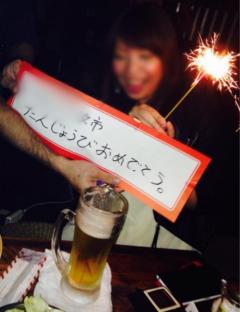 姉
たんじょうびおめでとう。